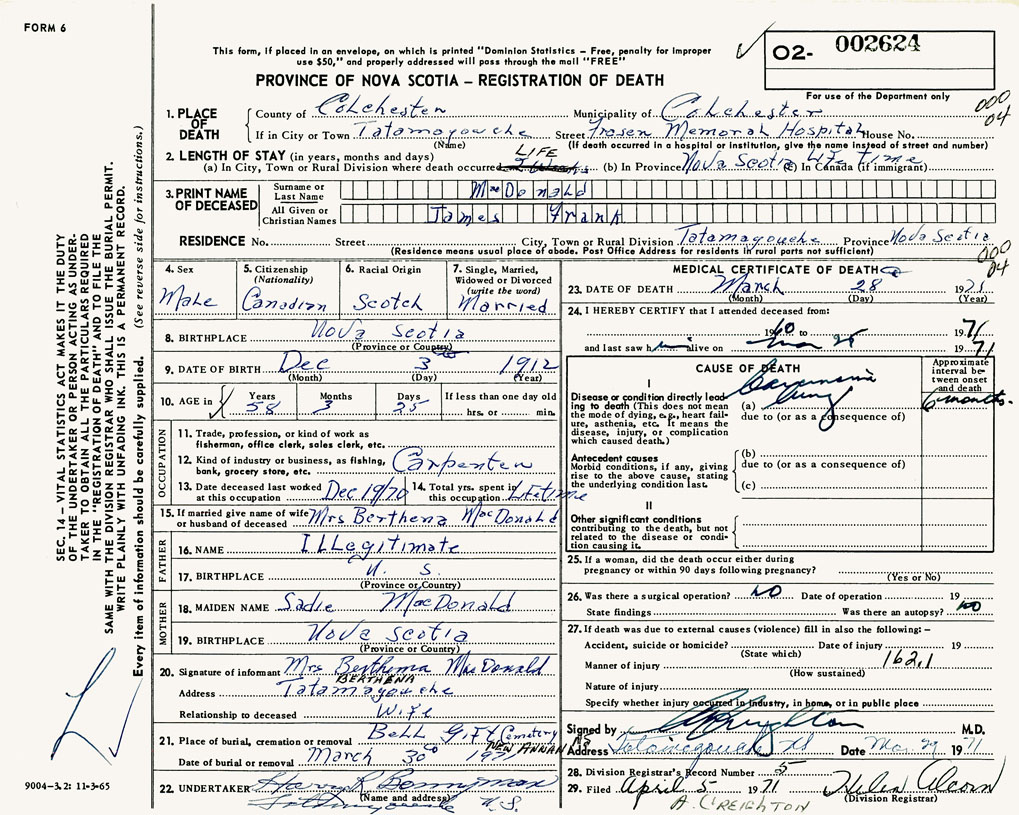 FORM 6
O2- 002624
This form, if placed in an envelope, on which is printed "Dominion Statistics – Free, penalty for improper
use $50," and properly addressed will pass through the mail "FREE"
PROVINCE OF NOVA SCOTIA – REGISTRATION OF DEATH
For use of the Department only
000
04
1. PLACE OF DEATH
County of Colchester Municipality of Colchester
If in City or Town Tatamagouche Street Frasen Memorial Hospital House No.
(Name) (If death occurred in a hospital or institution, give the name instead of street and number)
2. LENGTH OF STAY (in years, months and days) LIFE
(a) In City, Town or Rural Division where death occurred (b) In Province Nova Scotia Life time (c) In Canada (if immigrant)
3. PRINT NAME OF DECEASED
Surname or Last Name MacDonald
All Given or Christian Names James Frank
RESIDENCE No. Street City, Town or Rural Division Tatamagouche Province Nova Scotia
(Residence means usual place of abode. Post Office Address for residents in rural parts not sufficient)
000
04
4. Sex Male
5. Citizenship (Nationality) Canadian
6. Racial Origin Scotch
7. Single, Married, Widowed or Divorced (write the word) Married
8. BIRTHPLACE Nova Scotia
(Province or Country)
9. DATE OF BIRTH Dec 3 1912
(Month) (Day) (Year)
10. AGE in Years 58 Months 3 Days 25 If less than one day old hrs. or min.
OCCUPATION
11. Trade, profession, or kind of work as
fisherman, office clerk, sales clerk, etc.
12. Kind of industry or business, as fishing,
bank, grocery store, etc. Carpenter
13. Date deceased last worked at this occupation Dec 19/70
14. Total yrs. spent in this occupation Lifetime
15. If married give name of wife or husband of deceased Mrs Berthena MacDonald
FATHER
16. NAME ILLegitimate
17. BIRTHPLACE N. S.
(Province or Country)
MOTHER
18. MAIDEN NAME Sadie MacDonald
19. BIRTHPLACE Nova Scotia
(Province or Country)
20. Signature of informant Mrs Berthema MacDonald
BERTHENA
Address Tatamagouche
Relationship to deceased Wife
21. Place of burial, cremation or removal Bell Cemetery
NEW ANNAN NS
Date of burial or removal March 30 1971
22. UNDERTAKER
(Name and address) N.S.
MEDICAL CERTIFICATE OF DEATH
23. DATE OF DEATH March 28 1971
(Month) (Day) (Year)
24. I HEREBY CERTIFY that I attended deceased from:
1960 1971
and last saw him alive on 1971
CAUSE OF DEATH
Approximate interval between onset and death
I
Disease or condition directly leading to death (This does not mean the mode of dying, e.g., heart failure, asthenia, etc. It means the disease, injury, or complication which caused death.)
(a) Carcinoma Lung 6 months.
due to (or as a consequence of)
Antecedent causes
Morbid conditions, if any, giving rise to the above cause, stating the underlying condition last.
(b)
due to (or as a consequence of)
(c)
II
Other significant conditions
contributing to the death, but not related to the disease or condition causing it.
25. If a woman, did the death occur either during
pregnancy or within 90 days following pregnancy?
(Yes or No)
26. Was there a surgical operation? NO Date of operation 19
State findings Was there an autopsy? NO
27. If death was due to external causes (violence) fill in also the following:–
Accident, suicide or homicide? Date of injury 19
(State which)
Manner of injury 162.1
(How sustained)
Nature of injury
Specify whether injury occurred in industry, in home, or in public place
Signed by M.D.
Address Tatamagouche NS Date Mar. 29 1971
28. Division Registrar's Record Number 5
29. Filed April 5 1971 Helen Alcorn
(Division Registrar)
A. CREIGHTON
SEC. 14 – VITAL STATISTICS ACT MAKES IT THE DUTY
OF THE UNDERTAKER OR PERSON ACTING AS UNDER-
TAKER TO OBTAIN ALL THE PARTICULARS REQUIRED
IN THE "REGISTRATION OF DEATH" AND TO FILE THE
SAME WITH THE DIVISION REGISTRAR WHO SHALL ISSUE THE BURIAL PERMIT.
WRITE PLAINLY WITH UNFADING INK. THIS IS A PERMANENT RECORD.
Every item of information should be carefully supplied. (See reverse side for instructions.)
9004–3.2: 11-3-65